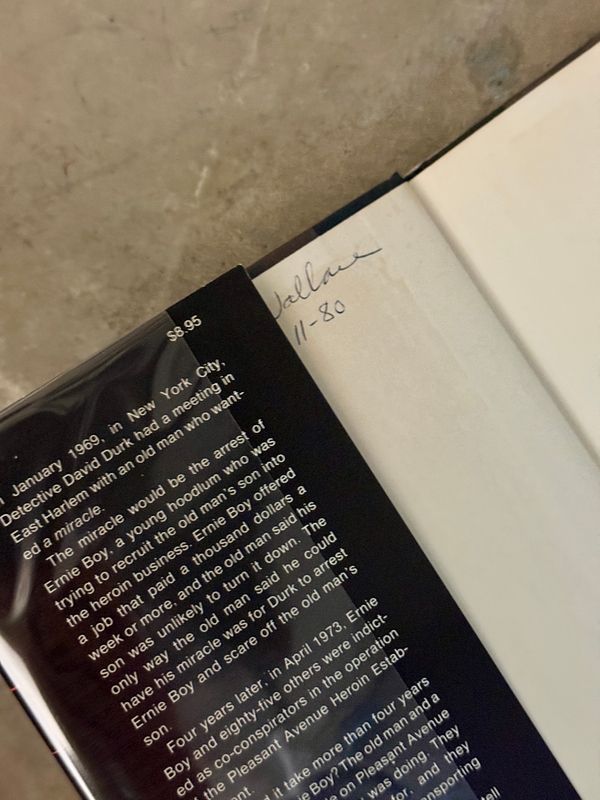 Wallace
11-80
$8.95
January 1969, in New York City,
Detective David Durk had a meeting in
East Harlem with an old man who want-
ed a miracle.
The miracle would be the arrest of
Ernie Boy, a young hoodlum who was
trying to recruit the old man's son into
the heroin business. Ernie Boy offered
a job that paid a thousand dollars a
week or more, and the old man said his
son was unlikely to turn it down. The
only way the old man said he could
have his miracle was for Durk to arrest
Ernie Boy and scare off the old man's
son.
Four years later, in April 1973, Ernie
Boy and eighty-five others were indict-
ed as co-conspirators in the operation
the Pleasant Avenue Heroin Estab-
it take more than four years
Boy? The old man and a
on Pleasant Avenue
was doing. They
for, and they